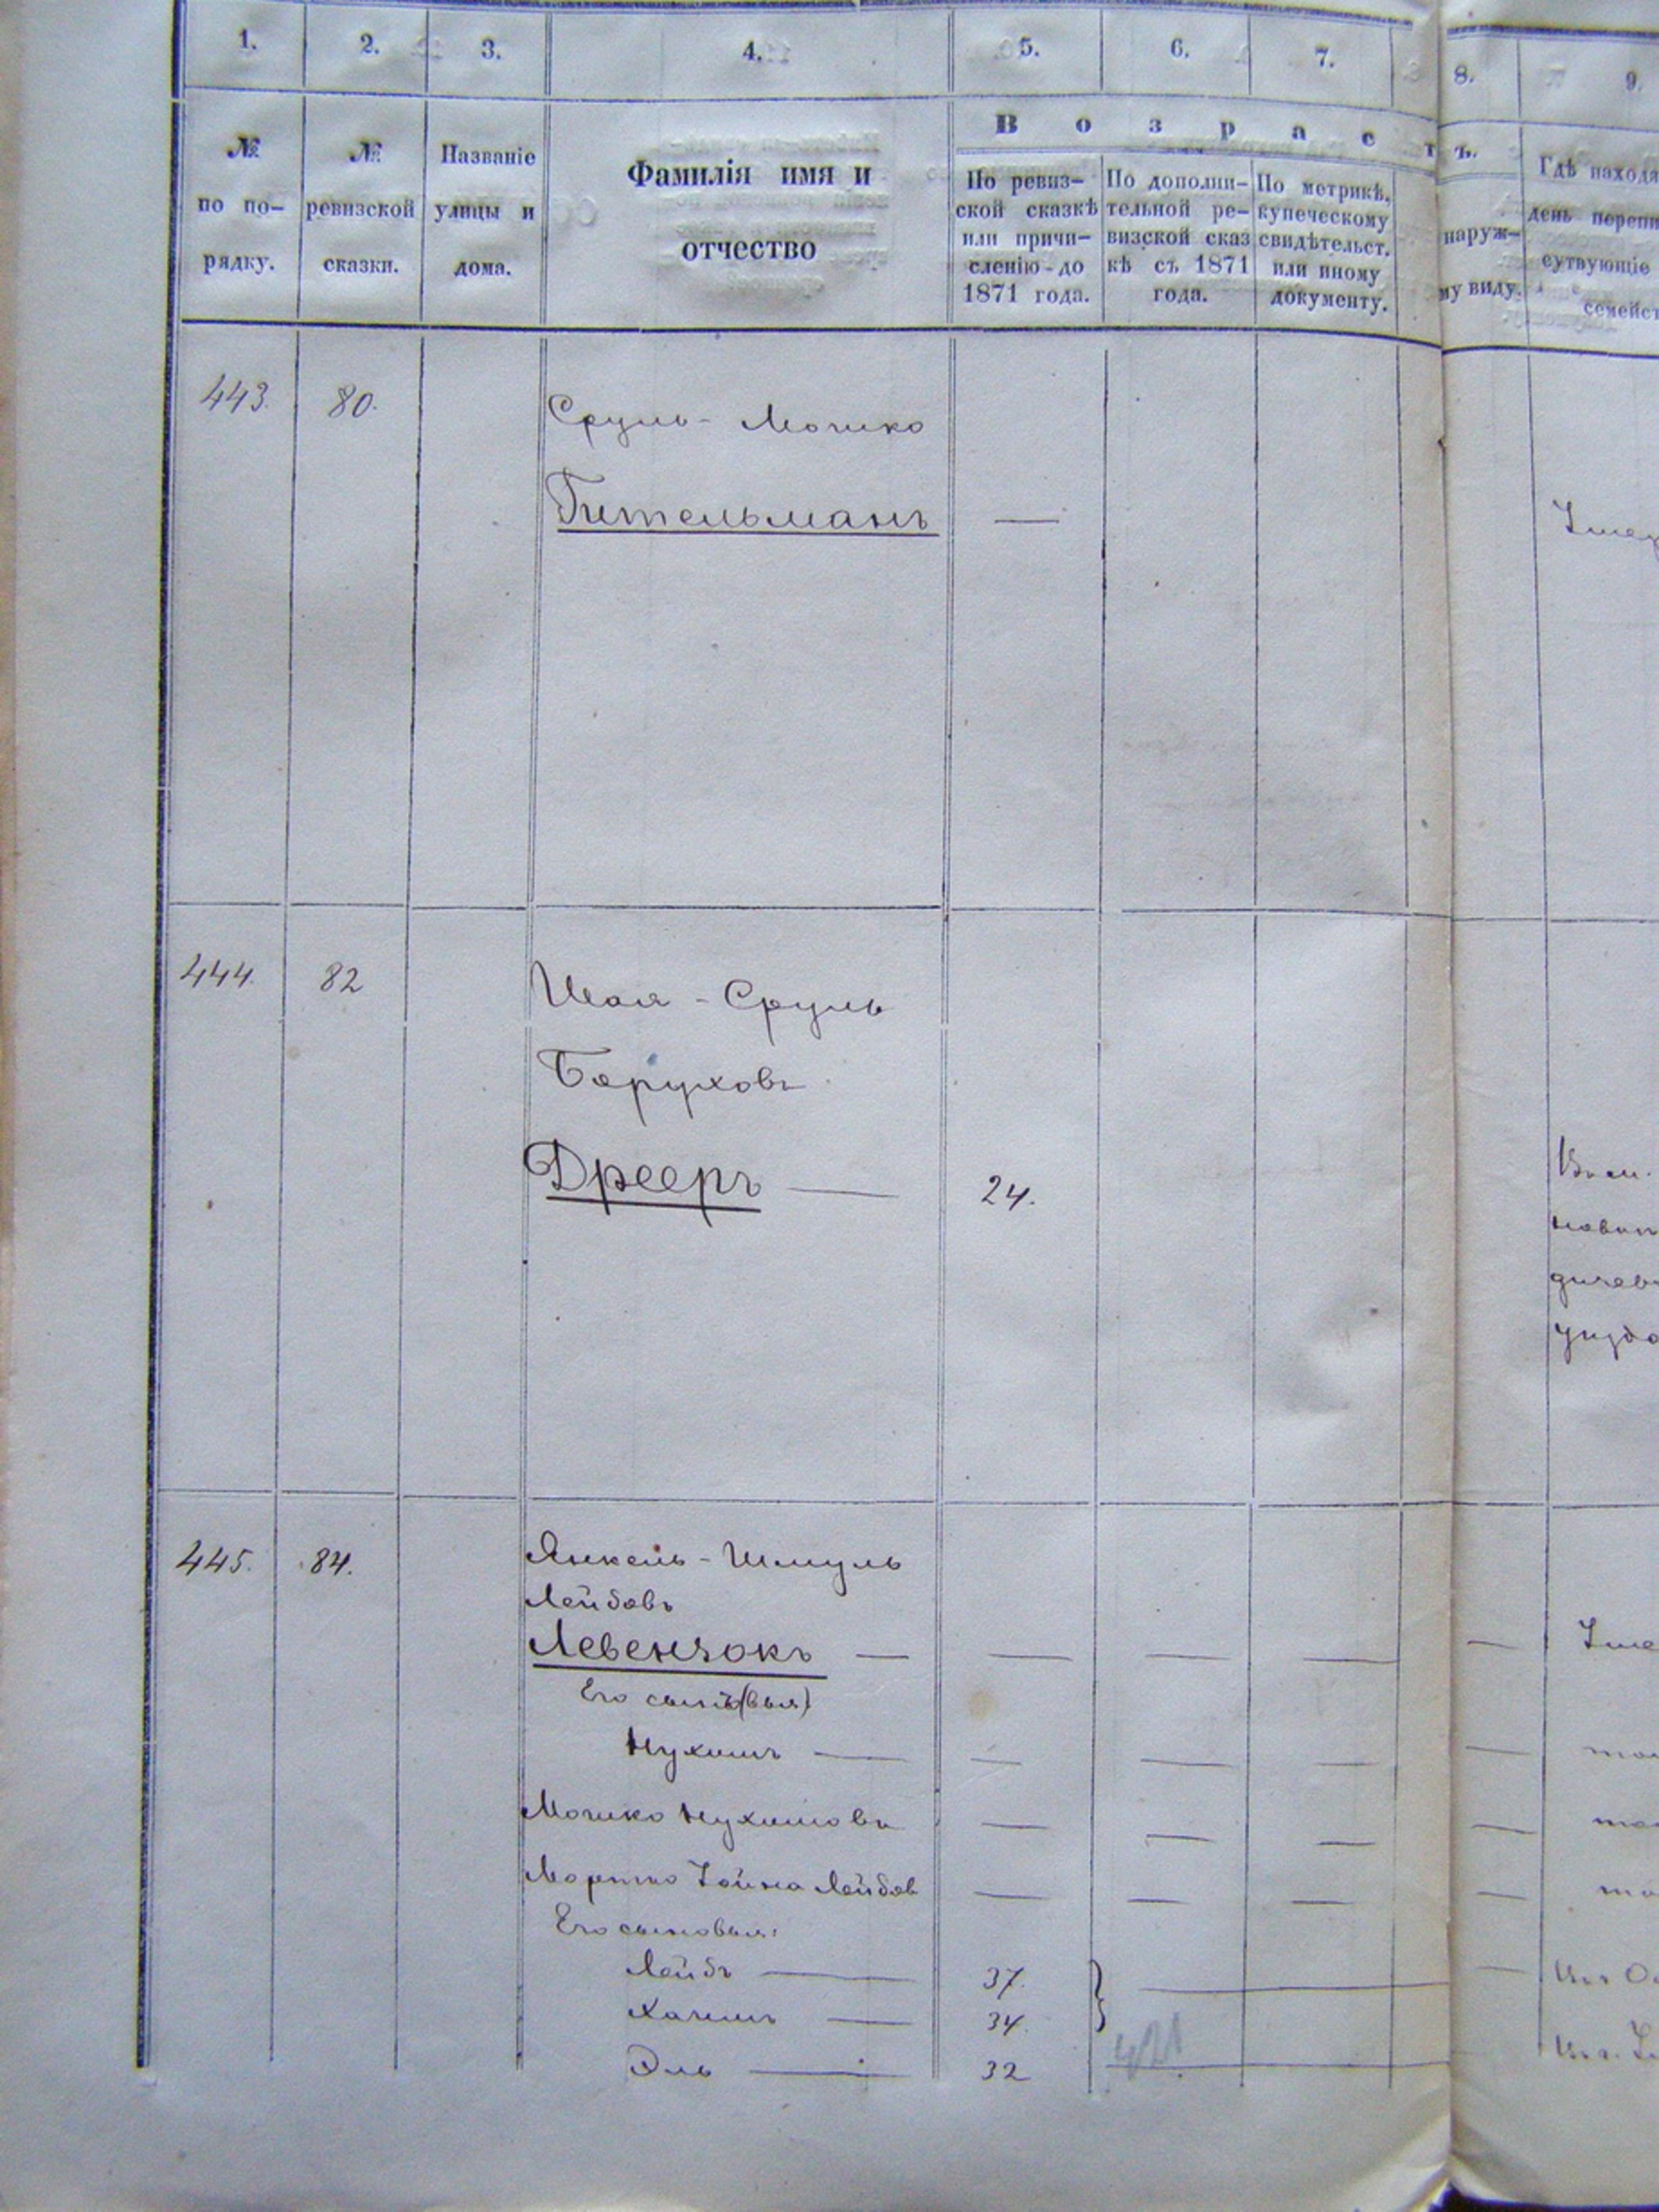 1. 2. 3. 4. 5. 6. 7. 8. 9.
№ по по- рядку.
№ ревизской сказки.
Названіе улицы и дома.
Фамилія имя и
отчество
Возрастъ.
По ревиз-
ской сказкѣ
или причи-
сленію до
1871 года.
По дополни-
тельной ре-
визской сказ
кѣ съ 1871
года.
По метрикѣ,
купеческому
свидѣтельст.
или иному
документу.
наруж-
му виду.
Гдѣ находя
день перепи
сутвующіе
семейст
443. 80. Сруль - Мошко
Гительманъ —
444. 82 Шая - Сруль
Барухов
Дрееръ — 24.
445. 84. Янкель - Шмуль
Лейбовъ
Левензокъ —
Его сынъ(вья)
Нухимъ —
Мошко Нухимовъ
Мортко Хаина Лейбов
Его сыновья:
Лейбъ — 37.
Хаимъ — 34.
Эль — 32
421